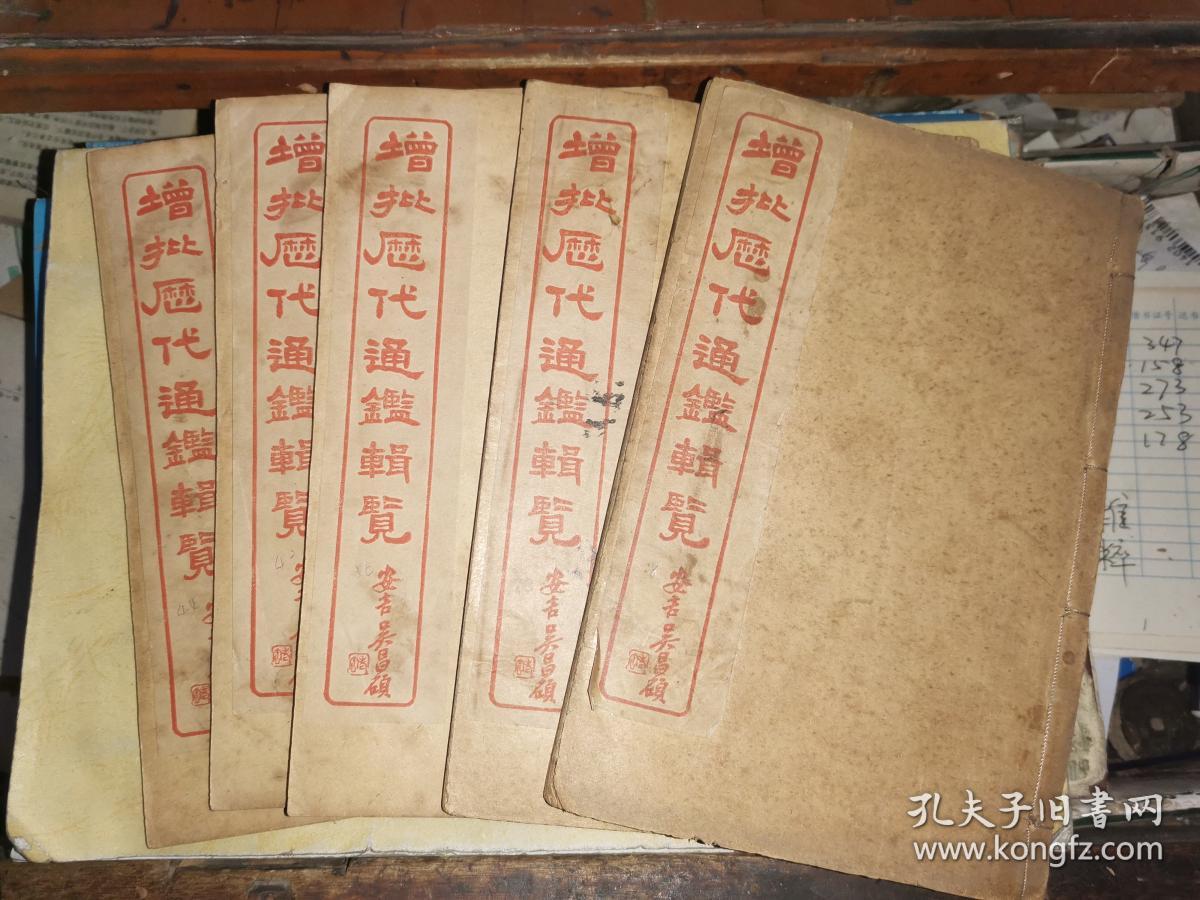 增批歷代通鑑輯覽
安
增批歷代通鑑輯覽
安
增批歷代通鑑輯覽
安吉吳昌碩
增批歷代通鑑輯覽
安吉吳昌碩
增批歷代通鑑輯覽
安吉吳昌碩
347
158
273
253
178
孔夫子旧书网
www.kongfz.com